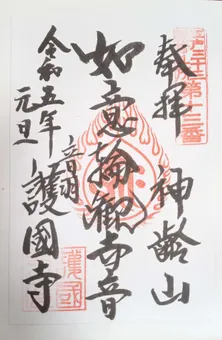 奉拝
神齢山
如意輪観世音
音羽
護國寺
令和五年
元旦
第十三番